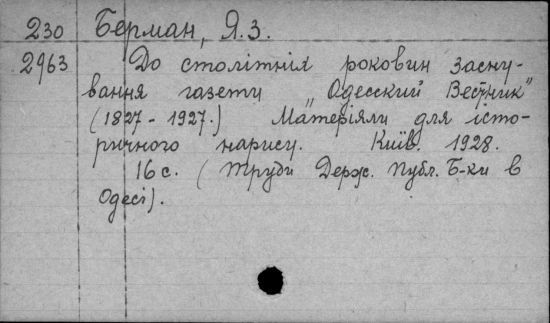 230 Берман, Я. З.
2963 До столітніх роковин засну-
вання газети "Одесский Вестник"
(1827 - 1927.) Матеріяли для істо-
ричного нарису. Київ. 1928.
16 с. (Труди Держ. Публ. Б-ки в
Одесі).